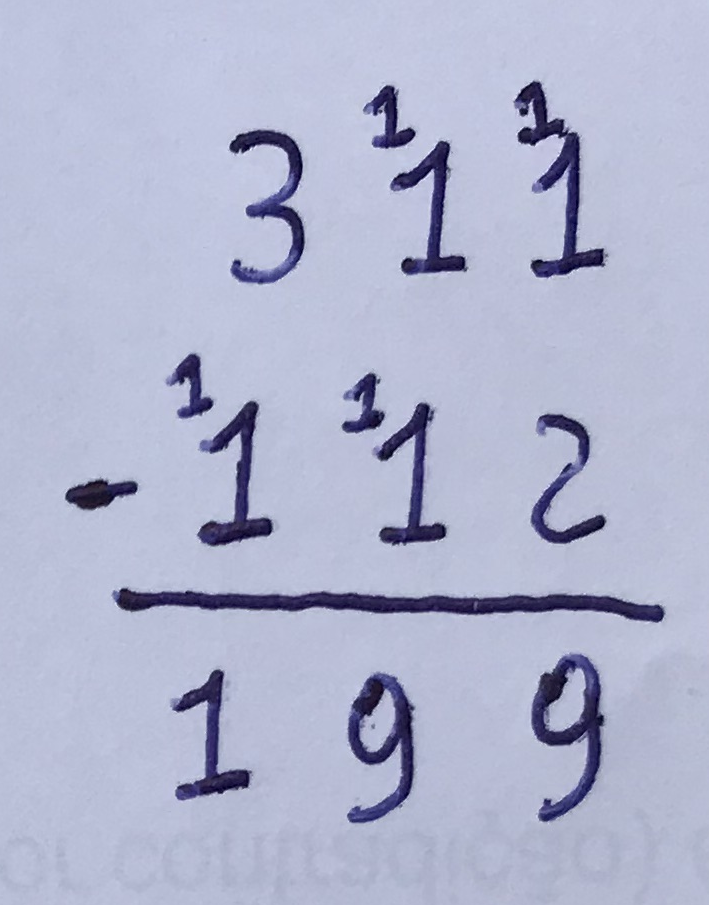 3 ¹1 ¹1
- ¹1 ¹1 2
1 9 9